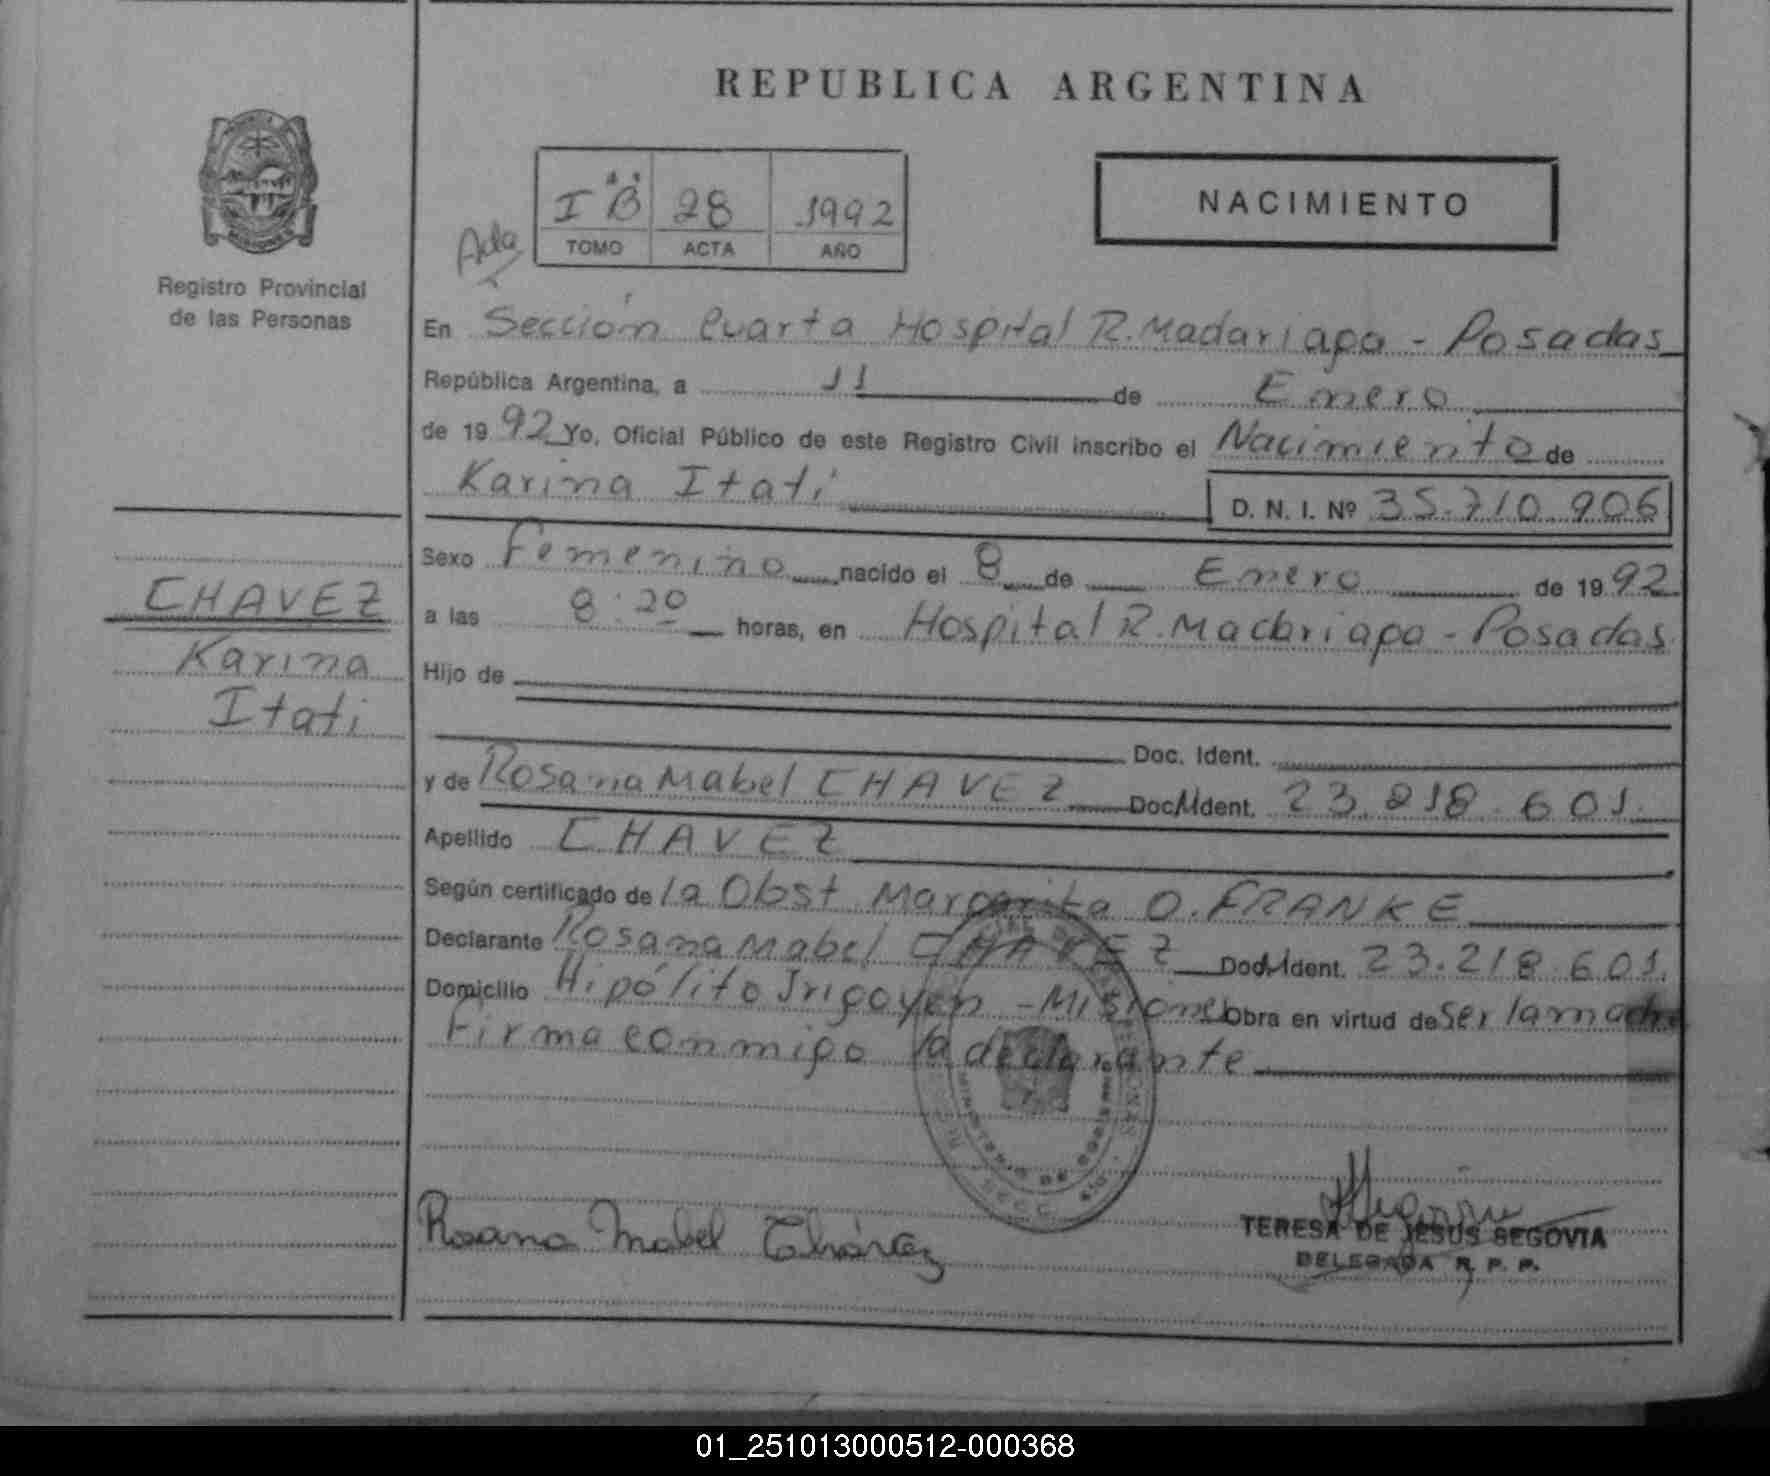 REPUBLICA ARGENTINA
I "B" 28 1992
TOMO ACTA AÑO
NACIMIENTO
Registro Provincial
de las Personas
En Sección Cuarta Hospital R. Madariaga - Posadas
República Argentina, a 11 de Enero
de 1992 Yo, Oficial Público de este Registro Civil inscribo el Nacimiento de
Karina Itati D. N. I. Nº 35.710.906
Sexo Femenino nacido el 8 de Enero de 1992
a las 8:20 horas, en Hospital R. Madariaga - Posadas
Hijo de
Doc. Ident.
y de Rosana Mabel CHAVEZ Doc. Ident. 23.218.601
Apellido CHAVEZ
Según certificado de la Obst Margarita O. FRANKE
Declarante Rosana Mabel CHAVEZ Doc. Ident. 23.218.601.
Domicilio Hipólito Irigoyen - Misiones Obra en virtud de Ser la madre
Firma conmigo la declarante
CHAVEZ
Karina
Itati
Rosana Mabel Chávez
TERESA DE JESUS SEGOVIA
DELEGADA R. P. P.
01_251013000512-000368